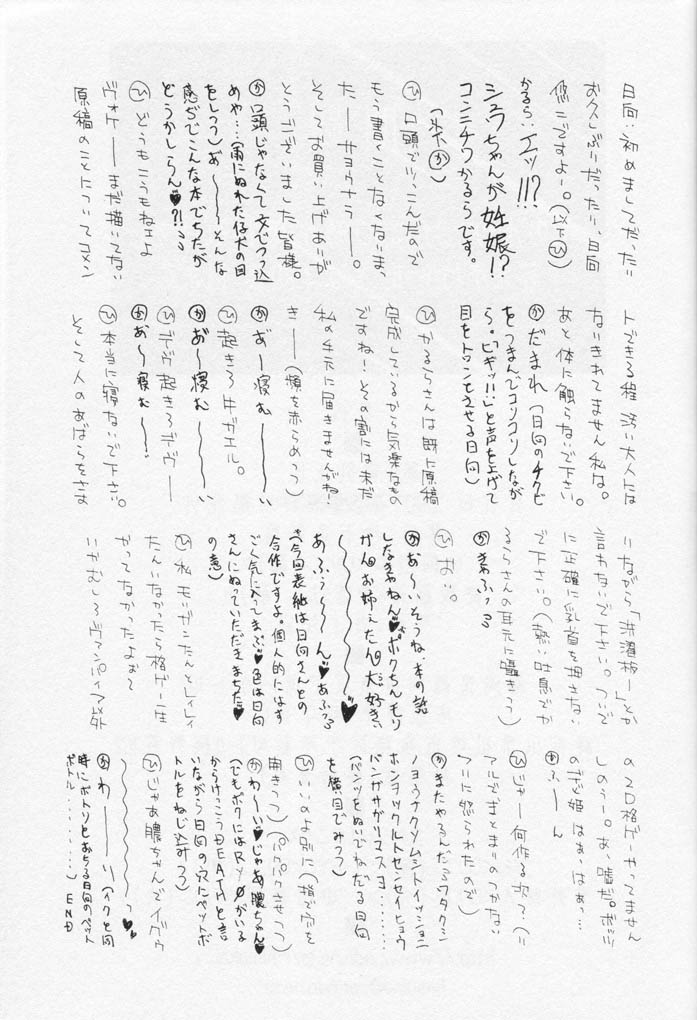 日向：初めましてだったり
お久しぶりだったり、日向
悠二ですよー。（以下ひ）
かるら：エッ!!!?
シュウちゃんが妊娠!?
コンニチワかるらです。
（以下か）
ひ 口頭でツッこんだので
もう書くことなくない、ま、
たーーサヨウナラーー。
そしてお買い上げありが
とうございました皆様。
か 口頭じゃなくて文でつっ込
めや…（雨にぬれた仔犬の目
をしつつ）あ〜〜〜そんな
感じでこんな本でちたが
どうかしらん♥?!るる
ひ どうもこうもねェよ
ヴォケーーまだ描いてない
原稿のことについてコメン
トできる程 汚い大人には
なりきれてません私は。
あと体に触らないで下さい。
か だまれ（日向のチクビ
をつまんでコリコリしなが
ら。「ピギッ!!」と声を上げて
目をトロンとさせる日向）
ひ かるらさんは既に原稿
完成しているから気楽なもの
ですね！その割には未だ
私の手元に届きませんがね！
きーー（頬を赤らめつつ）
か あ゛ー寝む〜〜〜い
ひ 起きろ牛ガエル。
か あ゛ー寝む〜〜〜い
ひ デヴ起きろデヴーー
か あ゛〜寝む〜〜！
ひ 本当に寝ないで下さい。
そして人のあばらをさす
りながら「洗濯板ー」とか
言わないで下さい。ついで
に正確に乳首を押さない
で下さい。（熱い吐息でか
るらさんの耳元に囁きつつ）
か きゃふっるる
ひ おい。
か あ〜いそうね、本の話
しなきゃねん♥ボクちんモリ
ガンお姉えたん大好き
〜〜〜〜〜〜〜♥
あふぅ〜〜〜ん♥あふっる
（今回表紙は日向さんとの
合作ですよ。個人的にはす
ごく気に入ってまふ♥色は日向
さんにぬっていただきまちた♥
の意）
ひ 私モリガンたんとレイレイ
たんいなかったら格ゲー一生
やってなかったよぉ〜
いやむしろヴァンパイア以外
の2D格ゲーやってません
しのうー。あ、嘘だ。ポッリ
のぎ姫はぁ、はぁっ…
か ふーん
ひ じゃー何作る次？（リ
アルでまとまりのつかない
フリに怒られたので）
か またやるんだるワタクシ
ノヨウナクソムシトイッショニ
ホンヨックルトセンセイヒョウ
バンガサガリマスヨ………
（パンツをぬいでねだる日向
を横目でみつつ）
ひ いいのよ別に（指で穴を
開きつつ）（パクパクさせつつ）
か わ〜い♥じゃあ朧ちゃん♥
（でもボクにはRYOがいる
からけっこうDEATHと言
いながら日向の穴にペットボ
トルをねじ込みつつ）
ひ じゃあ朧ちゃんでイグゥ
〜〜〜〜〜〜っ♥
か わーーーい（イクと同
時にボトリとおちる日向のペット
ボトル………）END